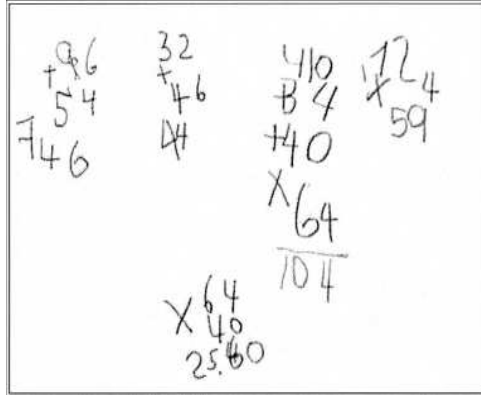 96
+
54
746
32
+
46
44
410
+34
+40
X
64
104
172
X 4
59
64
X 40
25.60